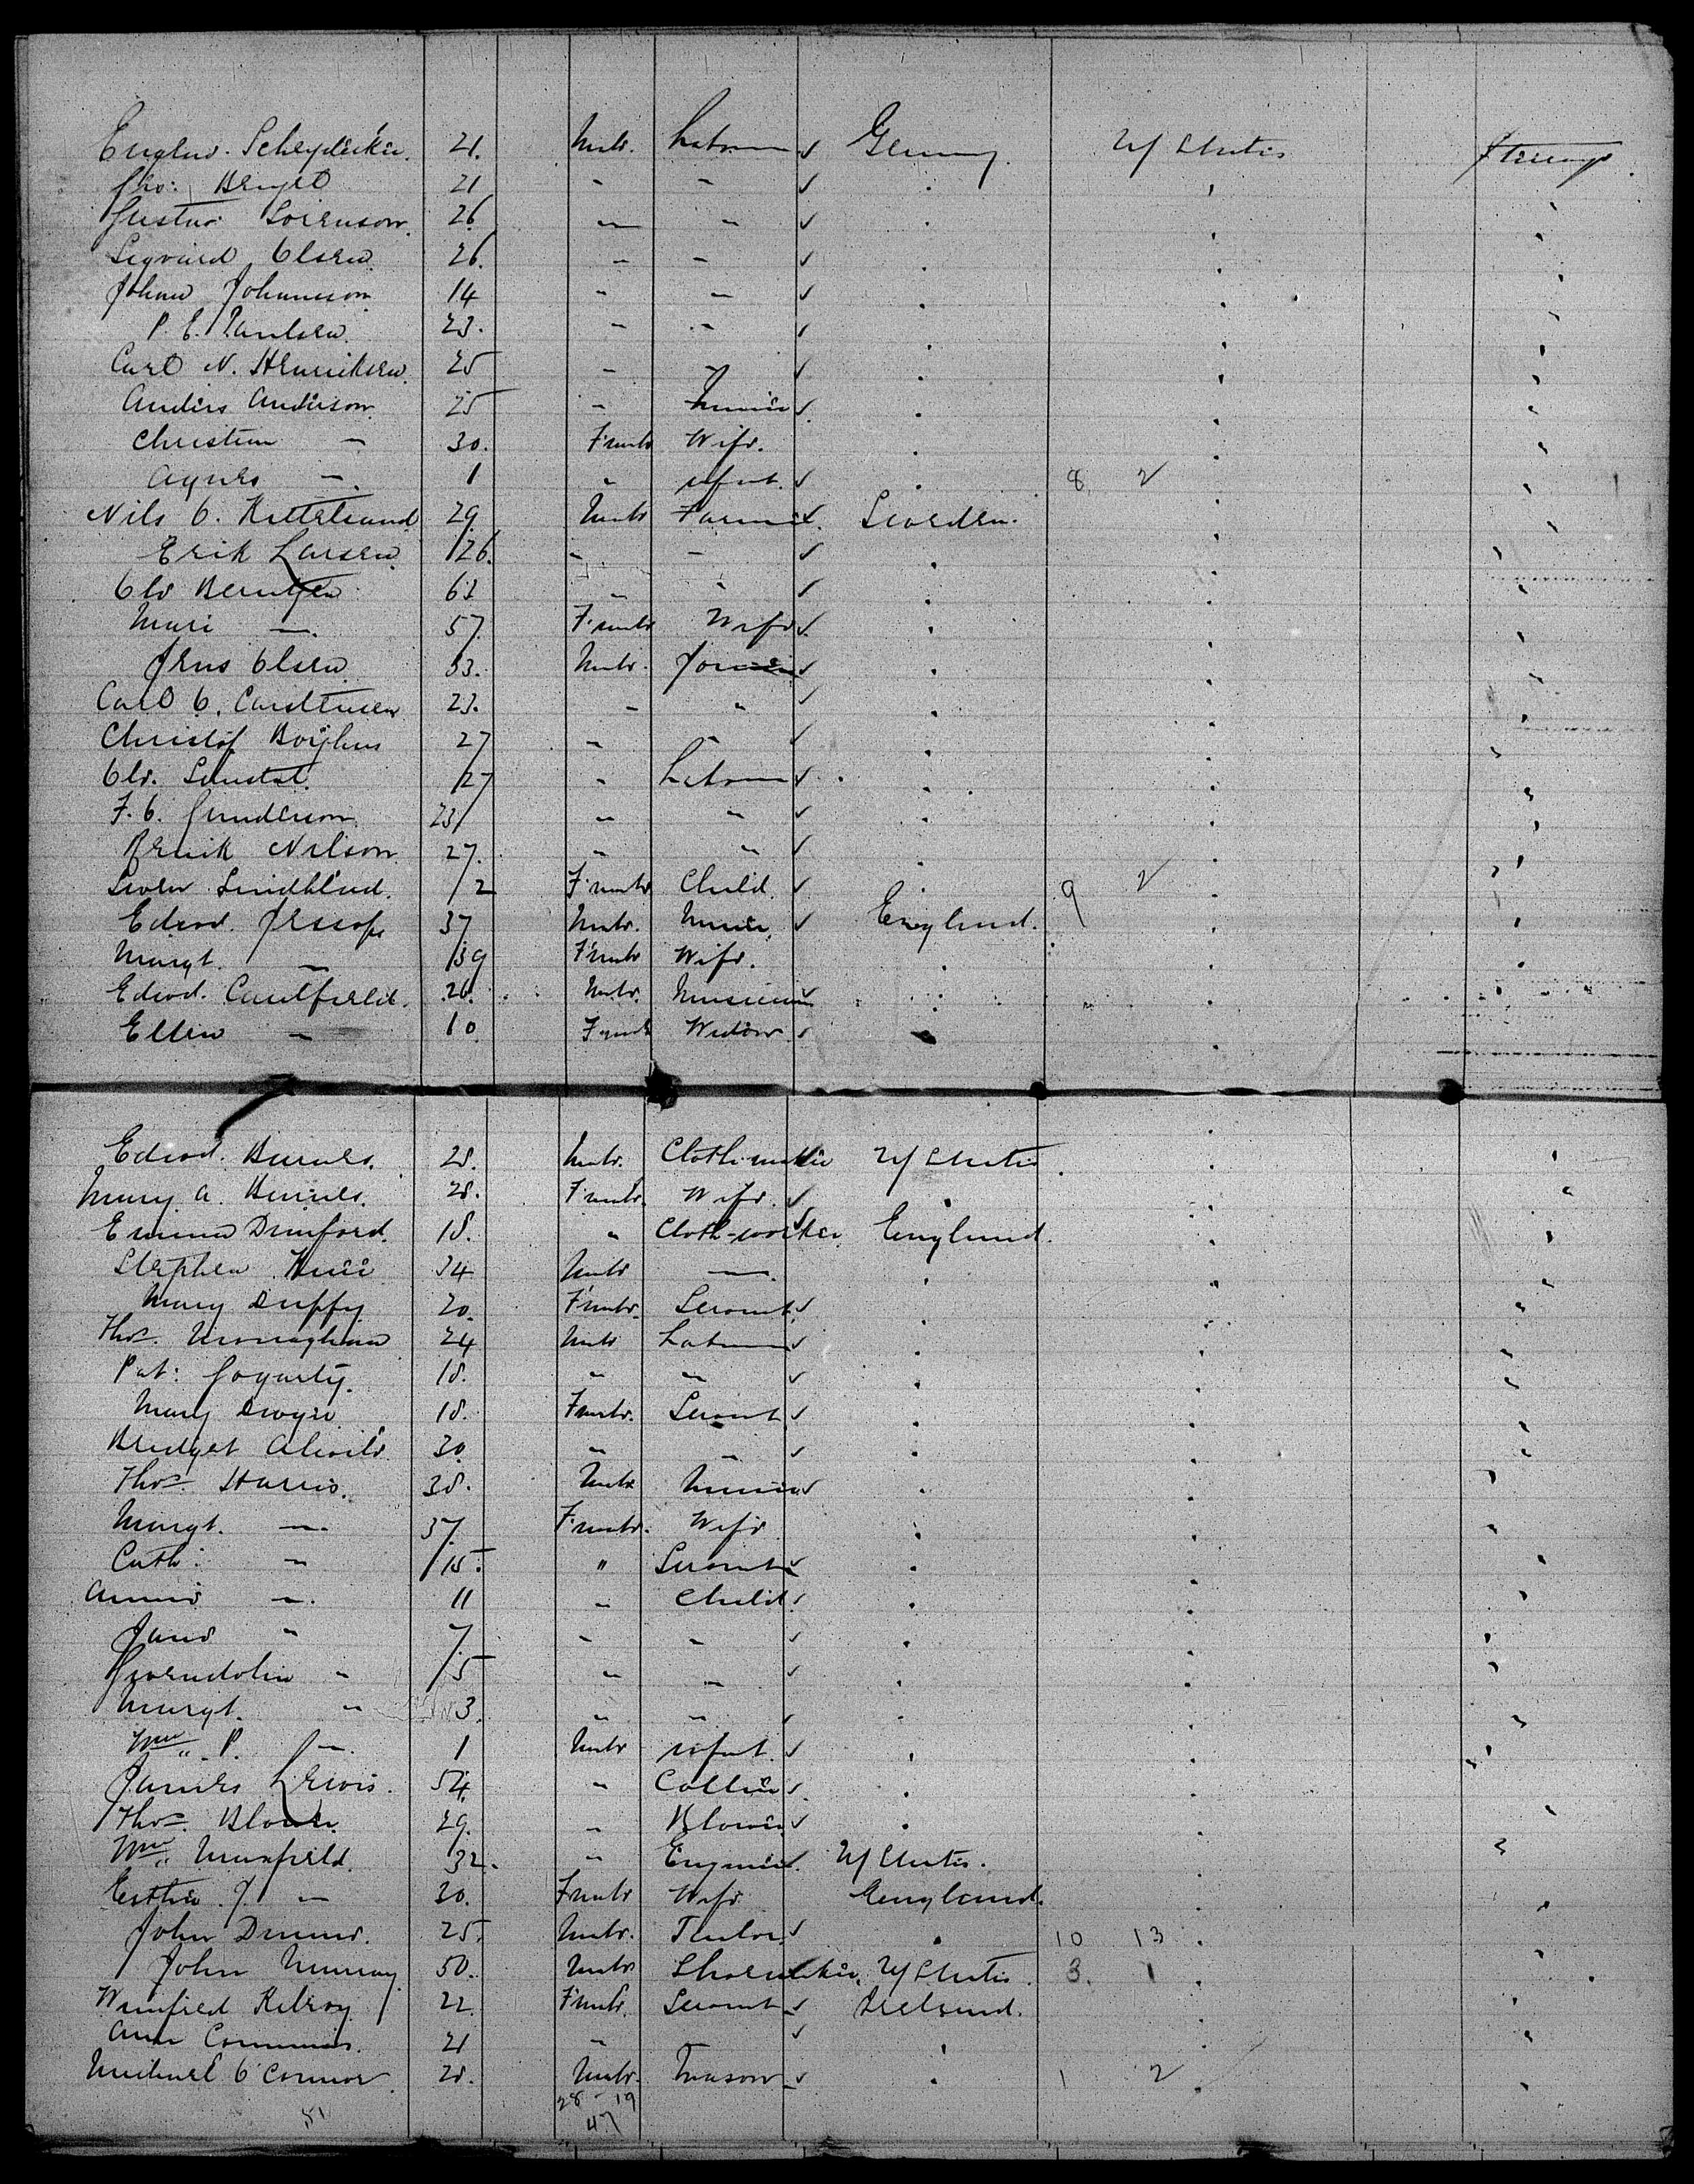 21. Male. Laborer Germany. U/States Steerage
21 " "
Gustav Sorenson. 26 " "
Sigvard Olsen. 26. " "
Johan Johanson 14 " "
P. E. Paulsen. 23. " "
Carl N. Henriksen. 25 " "
Anders Anderson. 25 " Miner
Christian " 30. Female Wife.
Agnes " 1 " infant. 8 2
Nils O. 29 Male Farmer. Sweden.
Erik Larsen. 26. " "
Ole Berntsen 63 " "
Mari " 57. Female Wife
Jens Olsen. 33. Male. Joiner
Carl O. Carstensen 23. " "
27 " "
Ole. 27 " Laborer
F. O. Gunderson. 23 " "
Nilson. 27. " "
Lindblad. 2 Female Child. 9 2
Edwd. Jessop 37 Male. Miner. England.
Margt. " 39 Female Wife.
Edwd. Caulfield. 26. Male. Musician
Ellen " 60 Female Widow
Edwd. Barnes. 28. Male. Clothmaker U/States
Mary A. Barnes. 28. Female. Wife.
Emma Dunford. 18. " Cloth-worker. England.
Stephen 34 Male "
Mary Duffy 20. Female. Servant.
Thos. Monaghan 24 Male Laborer
Pat: Fogarty. 18. " "
Mary Dwyer 18. Female. Servant
Bridget 30. " "
Thos. Harris. 38. Male Miner
Margt. " 37. Female. Wife
Cath: " 15. " Servant
Annie " 11 " Child.
Jane " 7 " "
Gwendolin " 5 " "
Margt. " 3. " "
Wm. P. " 1 Male infant.
James Lewis. 54. " Collier.
Thos. Blower. 29. "
Wm. Maxfield. 32. " Engineer. U/States.
Esther J. " 30. Female Wife England.
John 25. Male. Tailor 10 13
John Murray 50. Male Shoemaker. U/States. 3. 1
Winifred Kilroy 22. Female. Servant Ireland.
Ann Commins. 21 "
Michael O'Connor. 28. Male. Mason 1 2
28 - 19
51 47